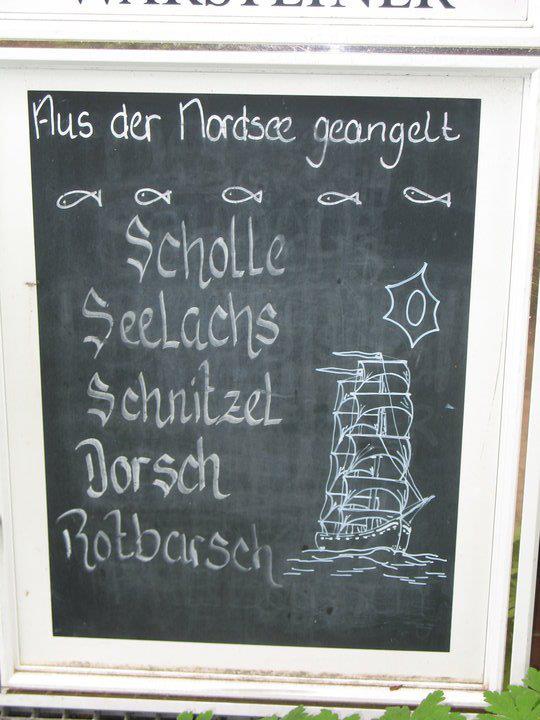 WARSTEINER
Aus der Nordsee geangelt
Scholle
Seelachs
Schnitzel
Dorsch
Rotbarsch